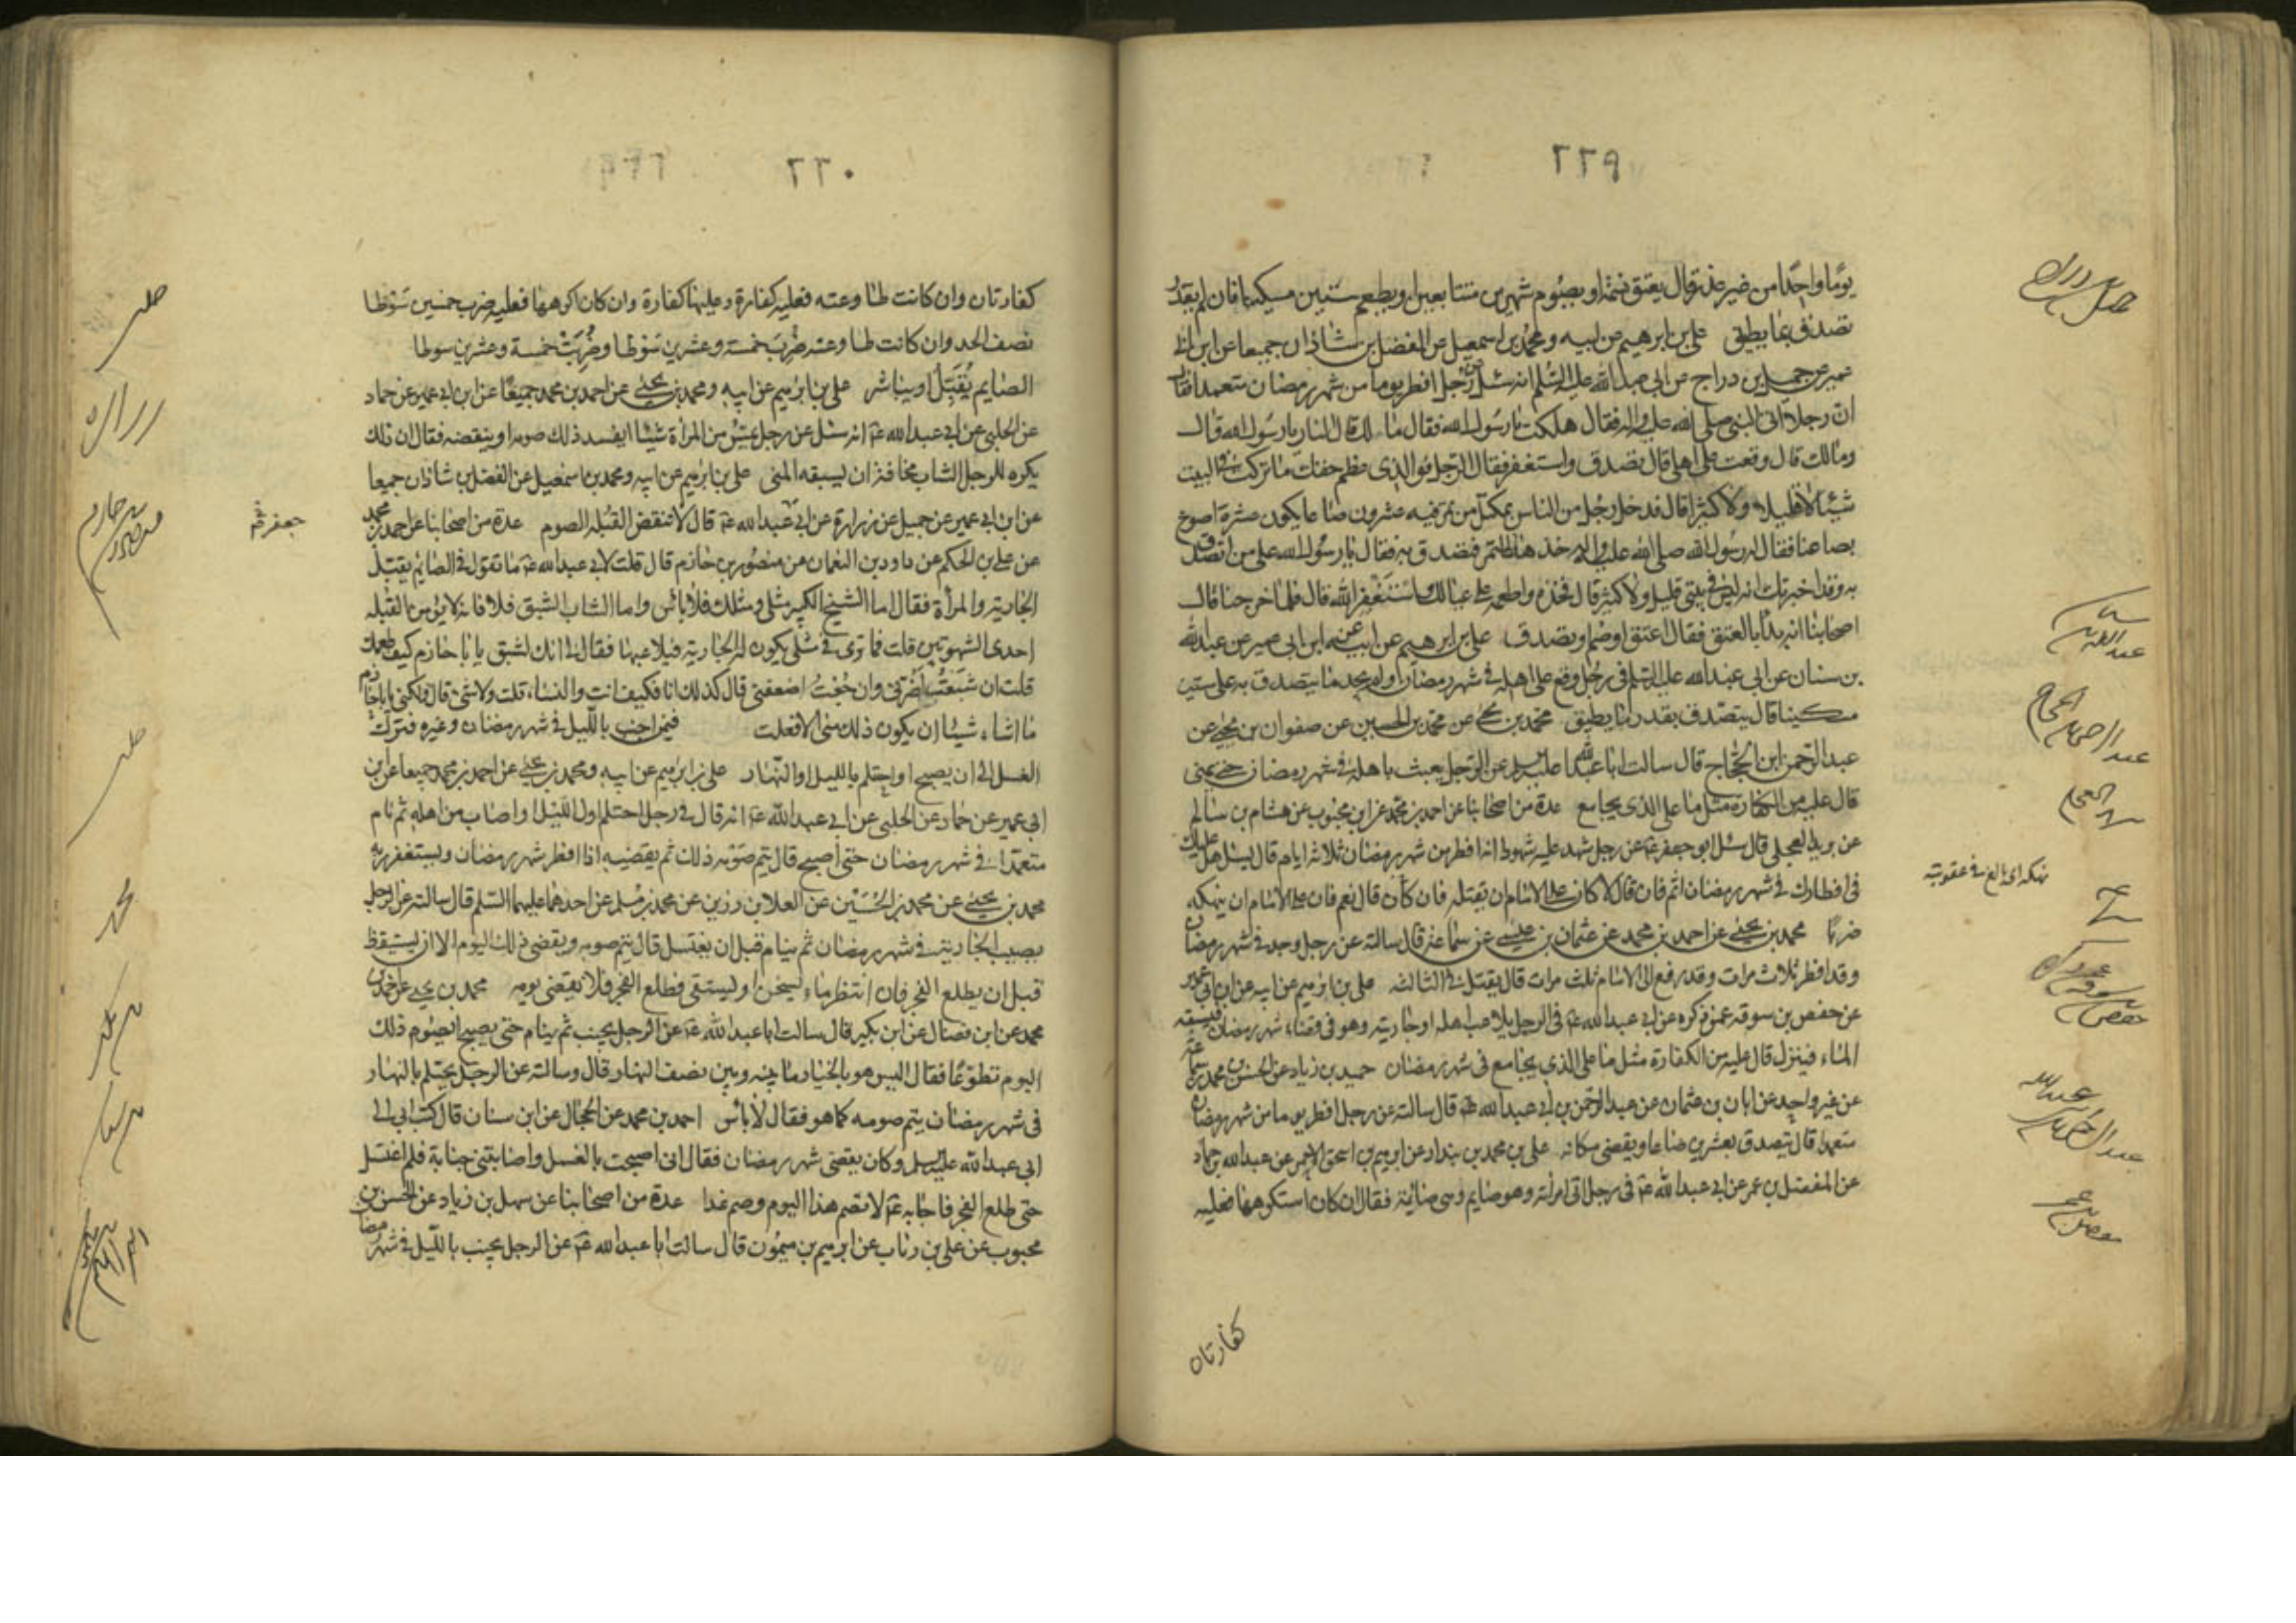 ٢٢٩
يومًا واحدًا من غير عذر قال يعتق نسمة او يصوم شهرين متتابعين او يطعم ستين مسكينا فان لم يقدر
تصدق بما يطيق علي بن ابرهيم عن ابيه ومحمد بن اسمعيل عن الفضل بن شاذان جميعا عن ابن ابي
عمير عن جميل بن دراج عن ابي عبد الله عليه السلم انه سئل عن رجل افطر يوما من شهر رمضان متعمدا فقال
ان رجلا اتى النبي صلى الله عليه واله فقال هلكت يا رسول الله فقال مالك قال النار يا رسول الله قال
ومالك قال وقعت على اهلي قال تصدق واستغفر فقال الرجل فوالذي عظم حقك ما تركت في البيت
شيئا لا قليلا ولا كثيرا قال فدخل رجل من الناس بمكتل من تمر فيه عشرون صاعا يكون عشرة اصوع
بصاعنا فقال له رسول الله صلى الله عليه واله خذ هذا التمر فتصدق به فقال يا رسول الله على من اتصدق
به وقد اخبرتك انه ليس في بيتي قليل ولا كثير قال فخذه واطعمه على عيالك واستغفر الله قال فلما خرجنا قال
اصحابنا انه بدأ بالعتق فقال اعتق او صم او تصدق علي بن ابرهيم عن ابيه عن ابن ابي عمير عن عبد الله
بن سنان عن ابي عبد الله عليه السلم في رجل وقع على اهله في شهر رمضان ولم يجد ما يتصدق به على ستين
مسكينا قال يتصدق بقدر ما يطيق محمد بن يحيى عن محمد بن الحسين عن صفوان بن يحيى عن
عبد الرحمن ابن الحجاج قال سالت ابا عبد الله عليه السلم عن الرجل يعبث باهله في شهر رمضان حتى يمنى
قال عليه من الكفارة مثل ما على الذي يجامع عدة من اصحابنا عن احمد بن محمد عن ابن محبوب عن هشام بن سالم
عن بريد العجلي قال سئل ابو جعفر عم عن رجل شهد عليه شهود انه افطر من شهر رمضان ثلاثة ايام قال يسئل هل عليك
في افطارك في شهر رمضان اثم فان قال لا كان على الامام ان يقتله فان كان قال نعم فان على الامام ان ينهكه
ضربا محمد بن يحيى عن احمد بن محمد عن عثمان بن عيسى عن سماعة قال سالته عن رجل وجد في شهر رمضان
وقد افطر ثلاث مرات وقد رفع الى الامام ثلث مرات قال يقتل في الثالثة علي بن ابرهيم عن ابيه عن ابن ابي عمير
عن حفص بن سوقة عمن ذكره عن ابي عبد الله عم في الرجل يلاعب اهله او جاريته وهو في قضاء شهر رمضان فيسبقه
الماء فينزل قال عليه من الكفارة مثل ما على الذي يجامع في شهر رمضان حميد بن زياد عن الحسن بن محمد بن سماعة
عن غير واحد عن ابان بن عثمان عن عبد الرحمن بن ابي عبد الله عم قال سالته عن رجل افطر يوما من شهر رمضان
متعمدا قال يتصدق بعشرين صاعا ويقضي مكانه علي بن محمد بن بندار عن ابرهيم بن اسحق الاحمر عن عبد الله بن حماد
عن المفضل بن عمر عن ابي عبد الله عم في رجل اتى امراته وهو صايم وهي صائمة فقال ان كان استكرهها فعليه
كفارتان
عبد الرحمن بن الحجاج
نهكه اي بالغ في عقوبته
حفص بن سوقة
٢٢٠
كفارتان وان كانت طاوعته فعليه كفارة وعليها كفارة وان كان اكرهها فعليه ضرب خمسين سوطا
نصف الحد وان كانت طاوعته ضرب خمسة وعشرين سوطا وضربت خمسة وعشرين سوطا
الصايم يقبل او يباشر علي بن ابرهيم عن ابيه ومحمد بن يحيى عن احمد بن محمد جميعًا عن ابن ابي عمير عن حماد
عن الحلبي عن ابي عبد الله عم انه سئل عن رجل يمس من المراة شيئا ايفسد ذلك صومه او ينقضه فقال ان ذلك
يكره للرجل الشاب مخافة ان يسبقه المني علي بن ابرهيم عن ابيه ومحمد بن اسمعيل عن الفضل بن شاذان جميعا
عن ابن ابي عمير عن جميل عن زرارة عن ابي عبد الله عم قال لا تنقض القبلة الصوم عدة من اصحابنا عن احمد بن محمد
عن علي بن الحكم عن داود بن النعمان عن منصور بن حازم قال قلت لابي عبد الله عم ما تقول في الصايم يقبل
الجارية والمرأة فقال اما الشيخ الكبير مثلي ومثلك فلا بأس واما الشاب الشبق فلا فانه لا يؤمن القبلة
احدى الشهوتين قلت فما ترى في مثلي يكون له الجارية فيلاعبها فقال لي انك لشبق يا با حازم كيف طعمك
قلت ان شبعت اضرني وان جعت اضعفني قال كذلك انا فكيف انت والنساء قلت ولا شئ قال ولكني يا باحازم
ما اشاء شيئا ان يكون ذلك مني الا فعلت فيمن اجنب بالليل في شهر رمضان وغيره فترك
الغسل الى ان يصبح او احتلم بالليل او النهار علي بن ابرهيم عن ابيه ومحمد بن يحيى عن احمد بن محمد جميعا عن ابن
ابي عمير عن حماد عن الحلبي عن ابي عبد الله عم انه قال في رجل احتلم اول الليل او اصاب من اهله ثم نام
متعمدا في شهر رمضان حتى اصبح قال يتم صومه ذلك ثم يقضيه اذا افطر شهر رمضان ويستغفر ربه
محمد بن يحيى عن محمد بن الحسين عن العلا بن رزين عن محمد بن مسلم عن احدهما عليهما السلم قال سالته عن الرجل
يصيب الجارية في شهر رمضان ثم ينام قبل ان يغتسل قال يتم صومه ويقضي ذلك اليوم الا ان يستيقظ
قبل ان يطلع الفجر فان انتظر ماء ليسخن او ليستقي فطلع الفجر فلا يقضي يومه محمد بن يحيى عن احمد بن
محمد عن ابن فضال عن ابن بكير قال سالت ابا عبد الله عم عن الرجل يجنب ثم ينام حتى يصبح ايصوم ذلك
اليوم تطوعًا فقال اليس هو بالخيار ما بينه وبين نصف النهار قال وسالته عن الرجل يحتلم بالنهار
في شهر رمضان يتم صومه كما هو فقال لا بأس احمد بن محمد عن الحجال عن ابن سنان قال كتب ابي الى
ابي عبد الله عليه السلم وكان يقضي شهر رمضان فقال اني اصبحت بالغسل واصابتني جنابة فلم اغتسل
حتى طلع الفجر فاجابه عم لا تصم هذا اليوم وصم غدا عدة من اصحابنا عن سهل بن زياد عن الحسن بن
محبوب عن علي بن رئاب عن ابرهيم بن ميمون قال سالت ابا عبد الله عم عن الرجل يجنب بالليل في شهر رمضان
محمد